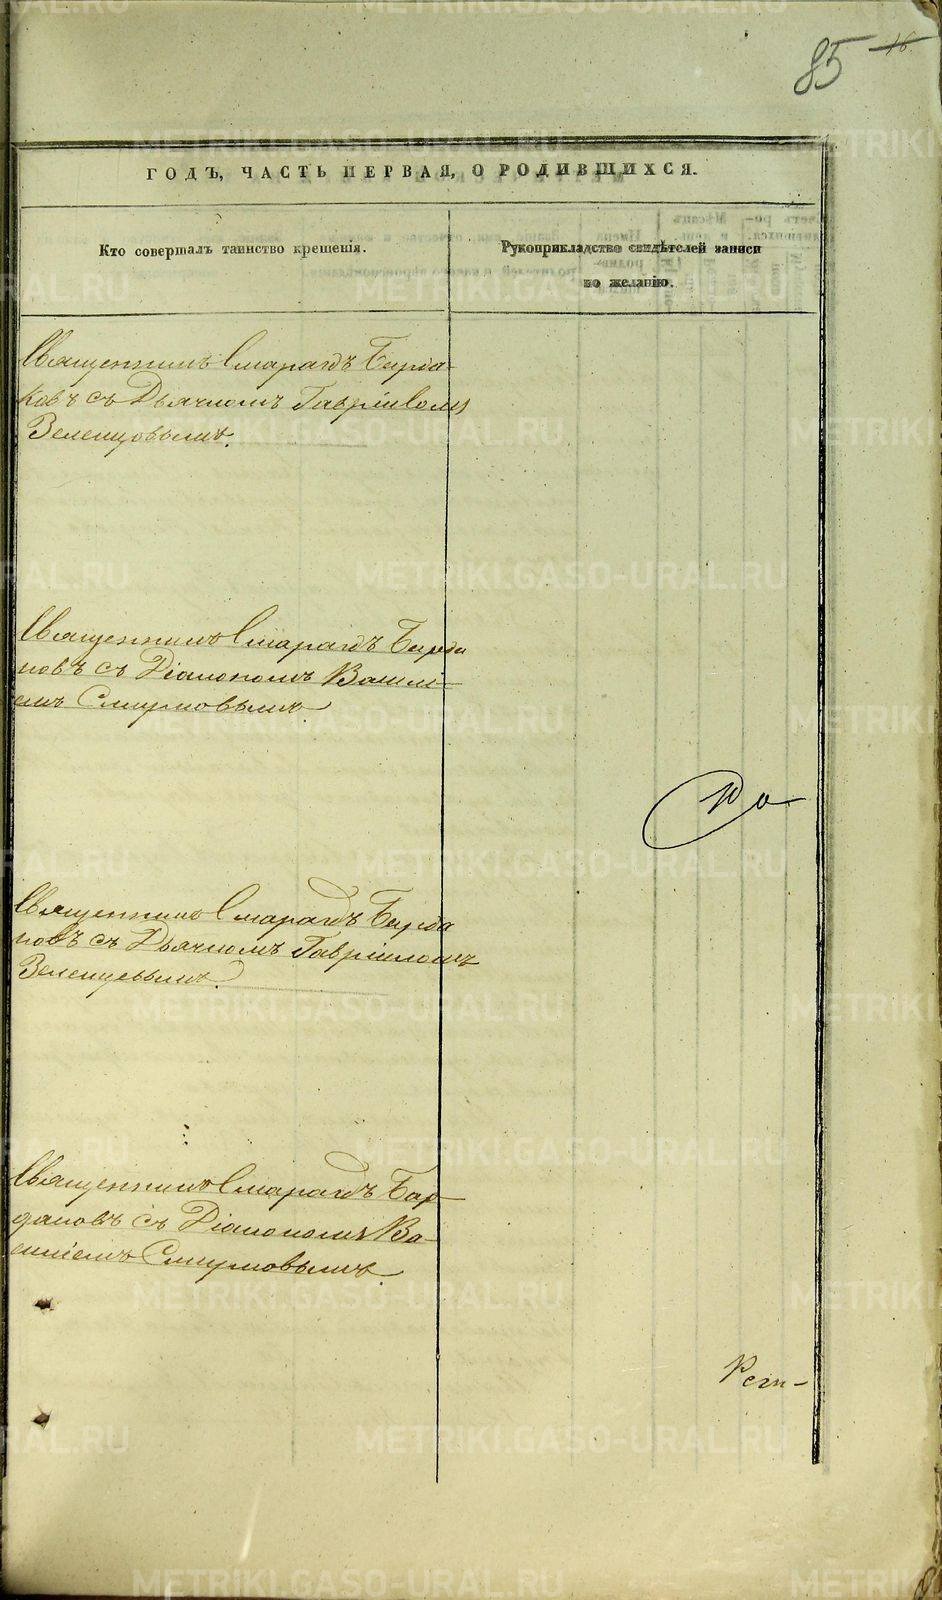 85 16
ГОДЪ, ЧАСТЬ ПЕРВАЯ, О РОДИВШИХСЯ.
Кто совершалъ таинство крещенія.
Рукоприкладство свидѣтелей записи
по желанію.
Священникъ Смарагдъ Бирда-
ковъ съ Дьячкомъ Гавріиломъ
Зеленцовымъ.
Священникъ Смарагдъ Бирда
ковъ съ Діакономъ Васили-
емъ Смирновымъ.
Священникъ Смарагдъ Бирда
ковъ съ Дьячкомъ Гавріиломъ
Зеленцовымъ.
Священникъ Смарагдъ Бир-
даковъ съ Діакономъ Ва-
силіемъ Смирновымъ.
METRIKI.GASO-URAL.RU